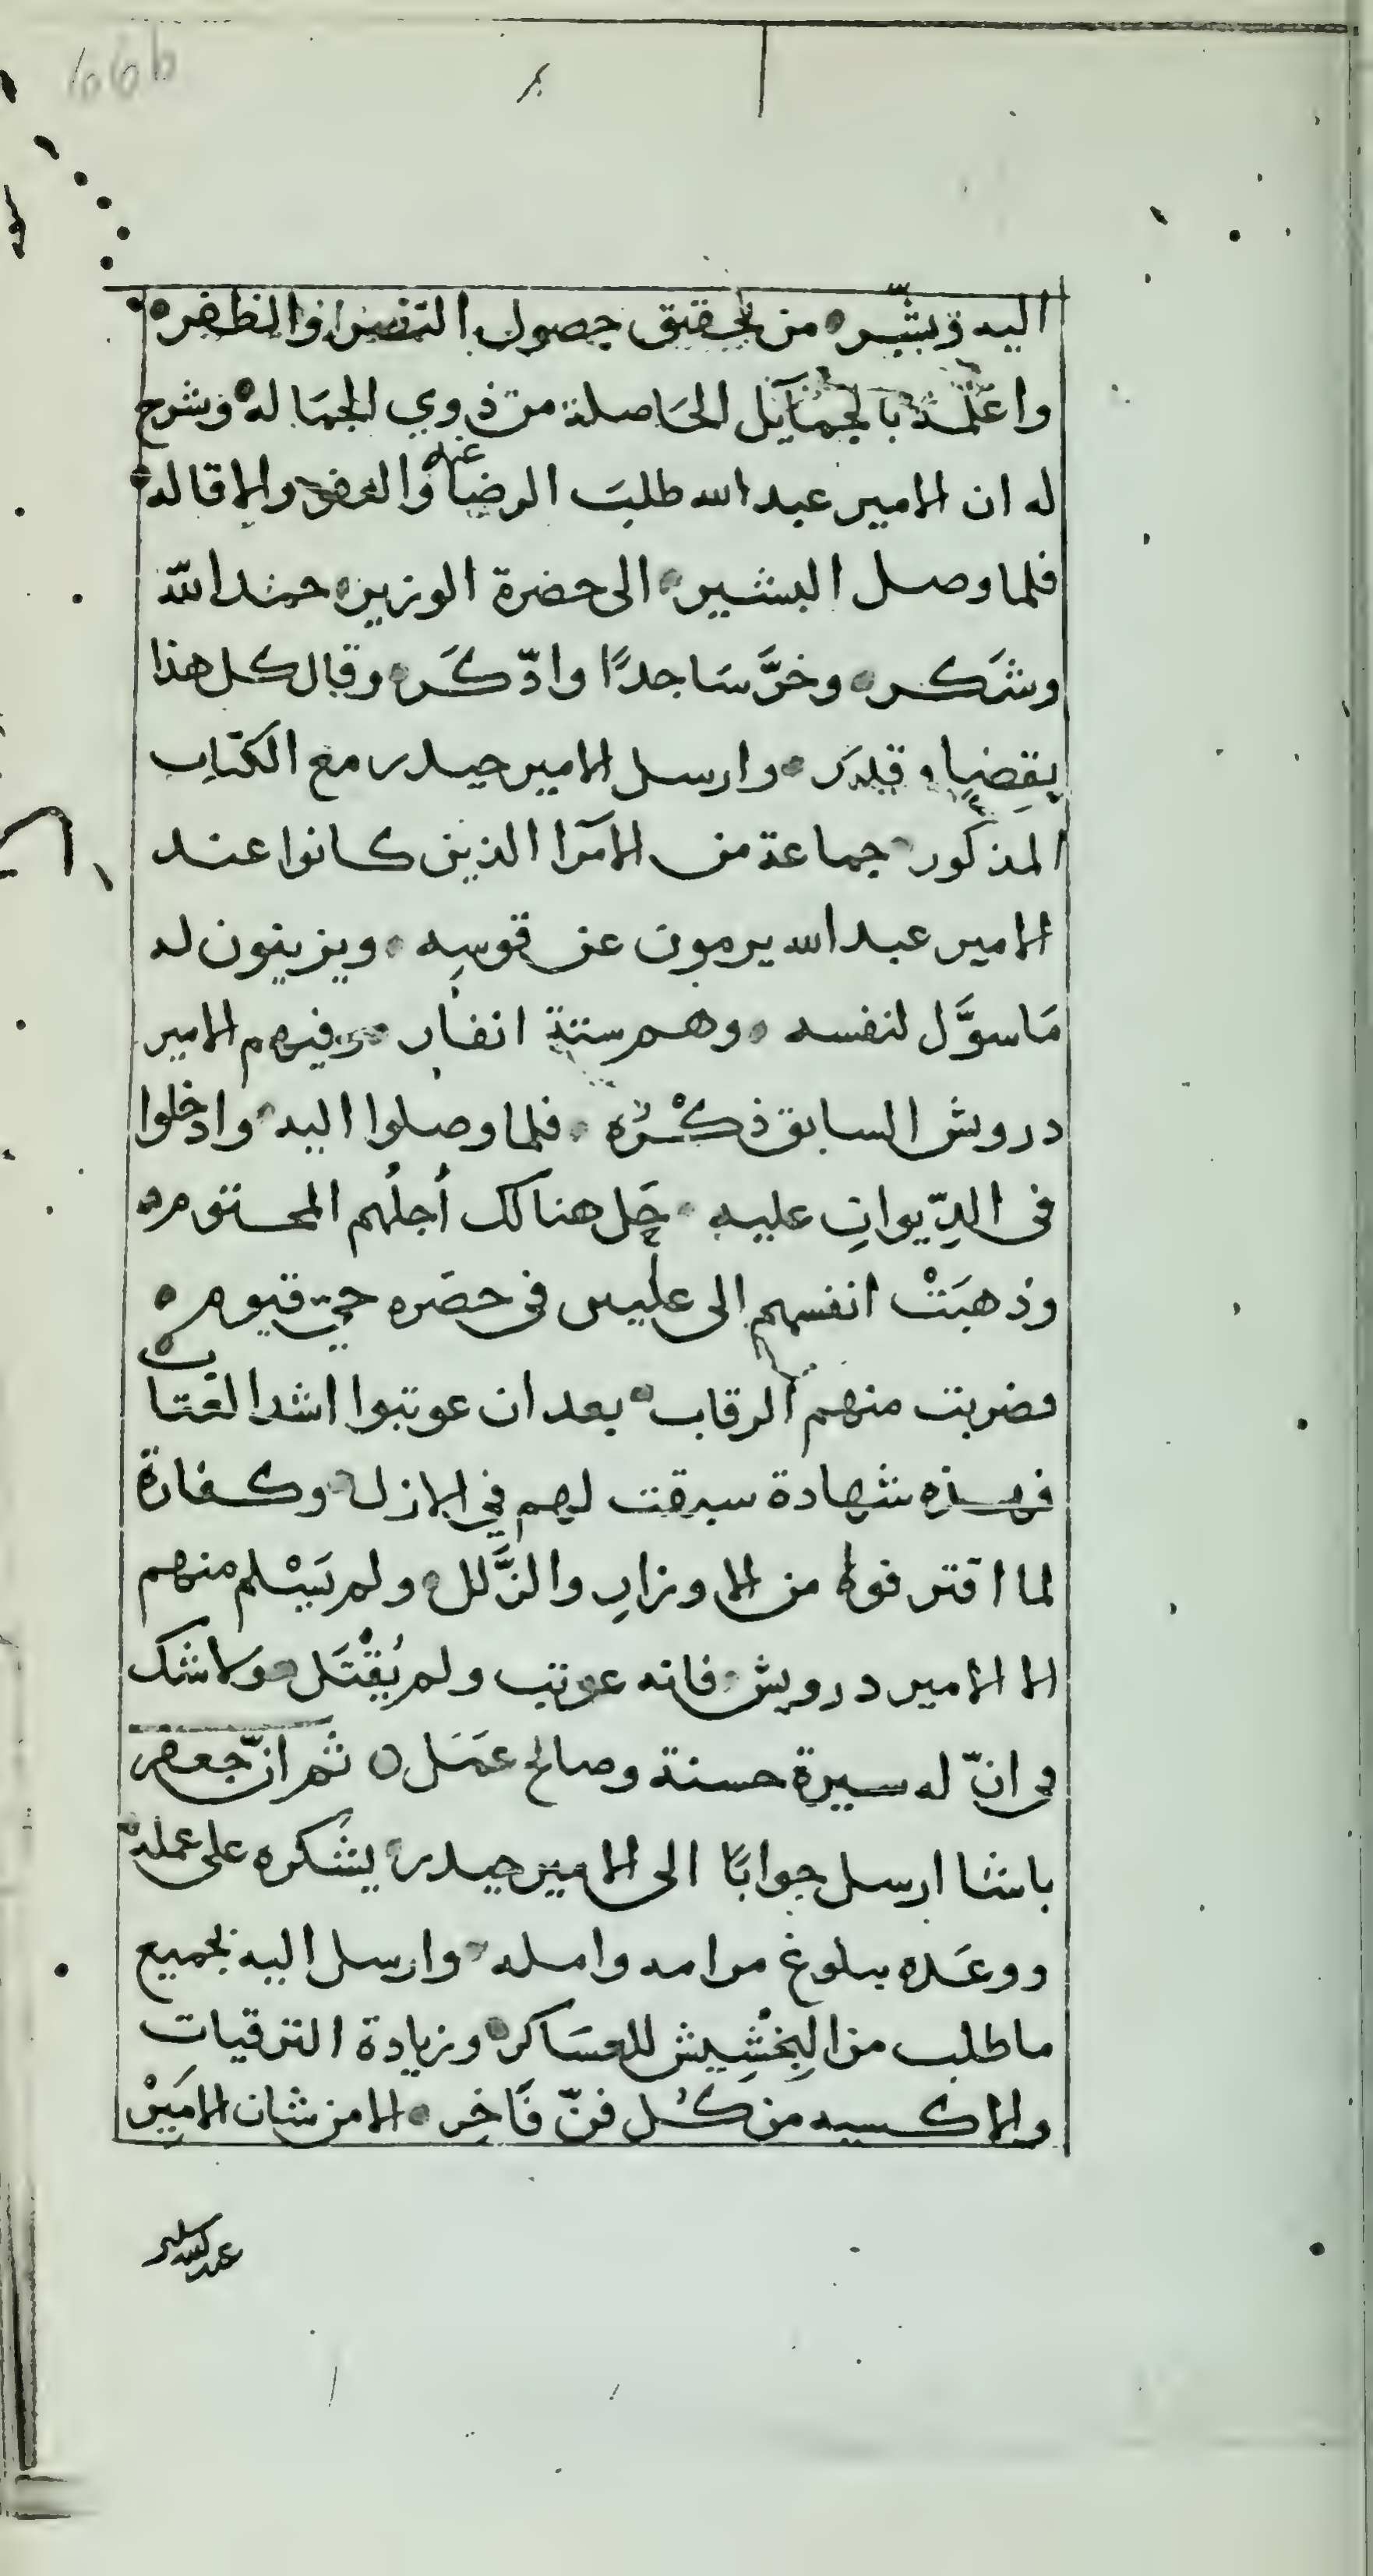 66b
اليه وبشّره من تحقيق حصول النصر والظفر ٥
واعلمه بالجمايل الحَاصلة من ذوي الجمَاله وشرح
له ان الامير عبد الله طلبَ الرضا عنه والعفو والاقاله
فلما وصل البشير ٥ الى حضرة الوزير ٥ حمد اللّه
وشَكر ٥ وخرَّ سَاجدًا وادّكَر ٥ وقال كل هذا
بقضا وقدَر ٥ وارسل الامير حيدر مع الكتاب
المذكور جماعة من الامَرا الذين كانوا عند
الامير عبد الله يرمون عن قوسِه ٥ ويزينون له
مَا سوَّل لنفسه ٥ وهم ستة انفار ٥ وفيهم الامير
درويش السابق ذكْرُه ٥ فلما وصلوا اليه وادخلوا
في الدِّيوانِ عليه ٥ حَل هنالك أجلُهم المحتوم ٥
وذهبَتْ انفسهم الى عليين في حضره حيّ قيوم ٥
فضربت منهم الرقاب ٥ بعد ان عوتبوا اشد العتاب
فهذه شهادة سبقت لهم في الازل ٥ وكفارة
لما اقترفوه من الاوزارِ والزَّلل ٥ ولم يَسْلم منهم
الا الامير درويش ٥ فانه عوتب ولم يُقْتَل ٥ ولا شك
في انّ له سيرة حسنة وصالح عمَل ٥ ثم انّ جعفر
باشا ارسل جوابًا الى الامير حيدر ٥ يشكره على عمله ٥
ووعَده ببلوغ مرامه وامله ٥ وارسل اليه بجميع
ما طلب من البِخْشِيش للعسَاكر ٥ وزيادة الترقيات
والاكسيه من كُل فنّ فَاخِر ٥ الا من شان الاميَرْ
عبد الله